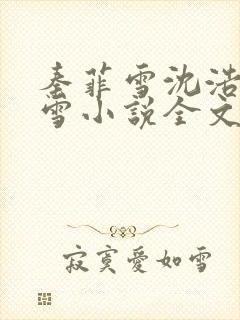 秦菲雪沈浩
雪小说全文
寂寞爱如雪